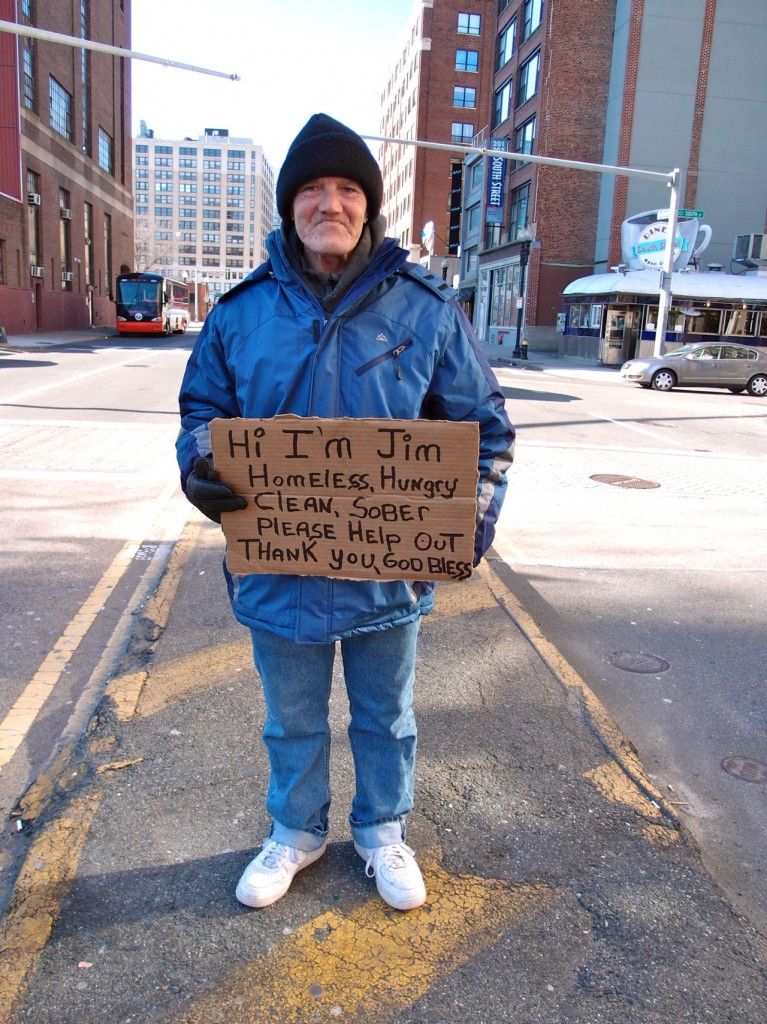 Hi I'm Jim
Homeless, Hungry
Clean, Sober
Please Help Out
Thank you, God Bless
201
SOUTH STREET
DINER
South St
SOUTH